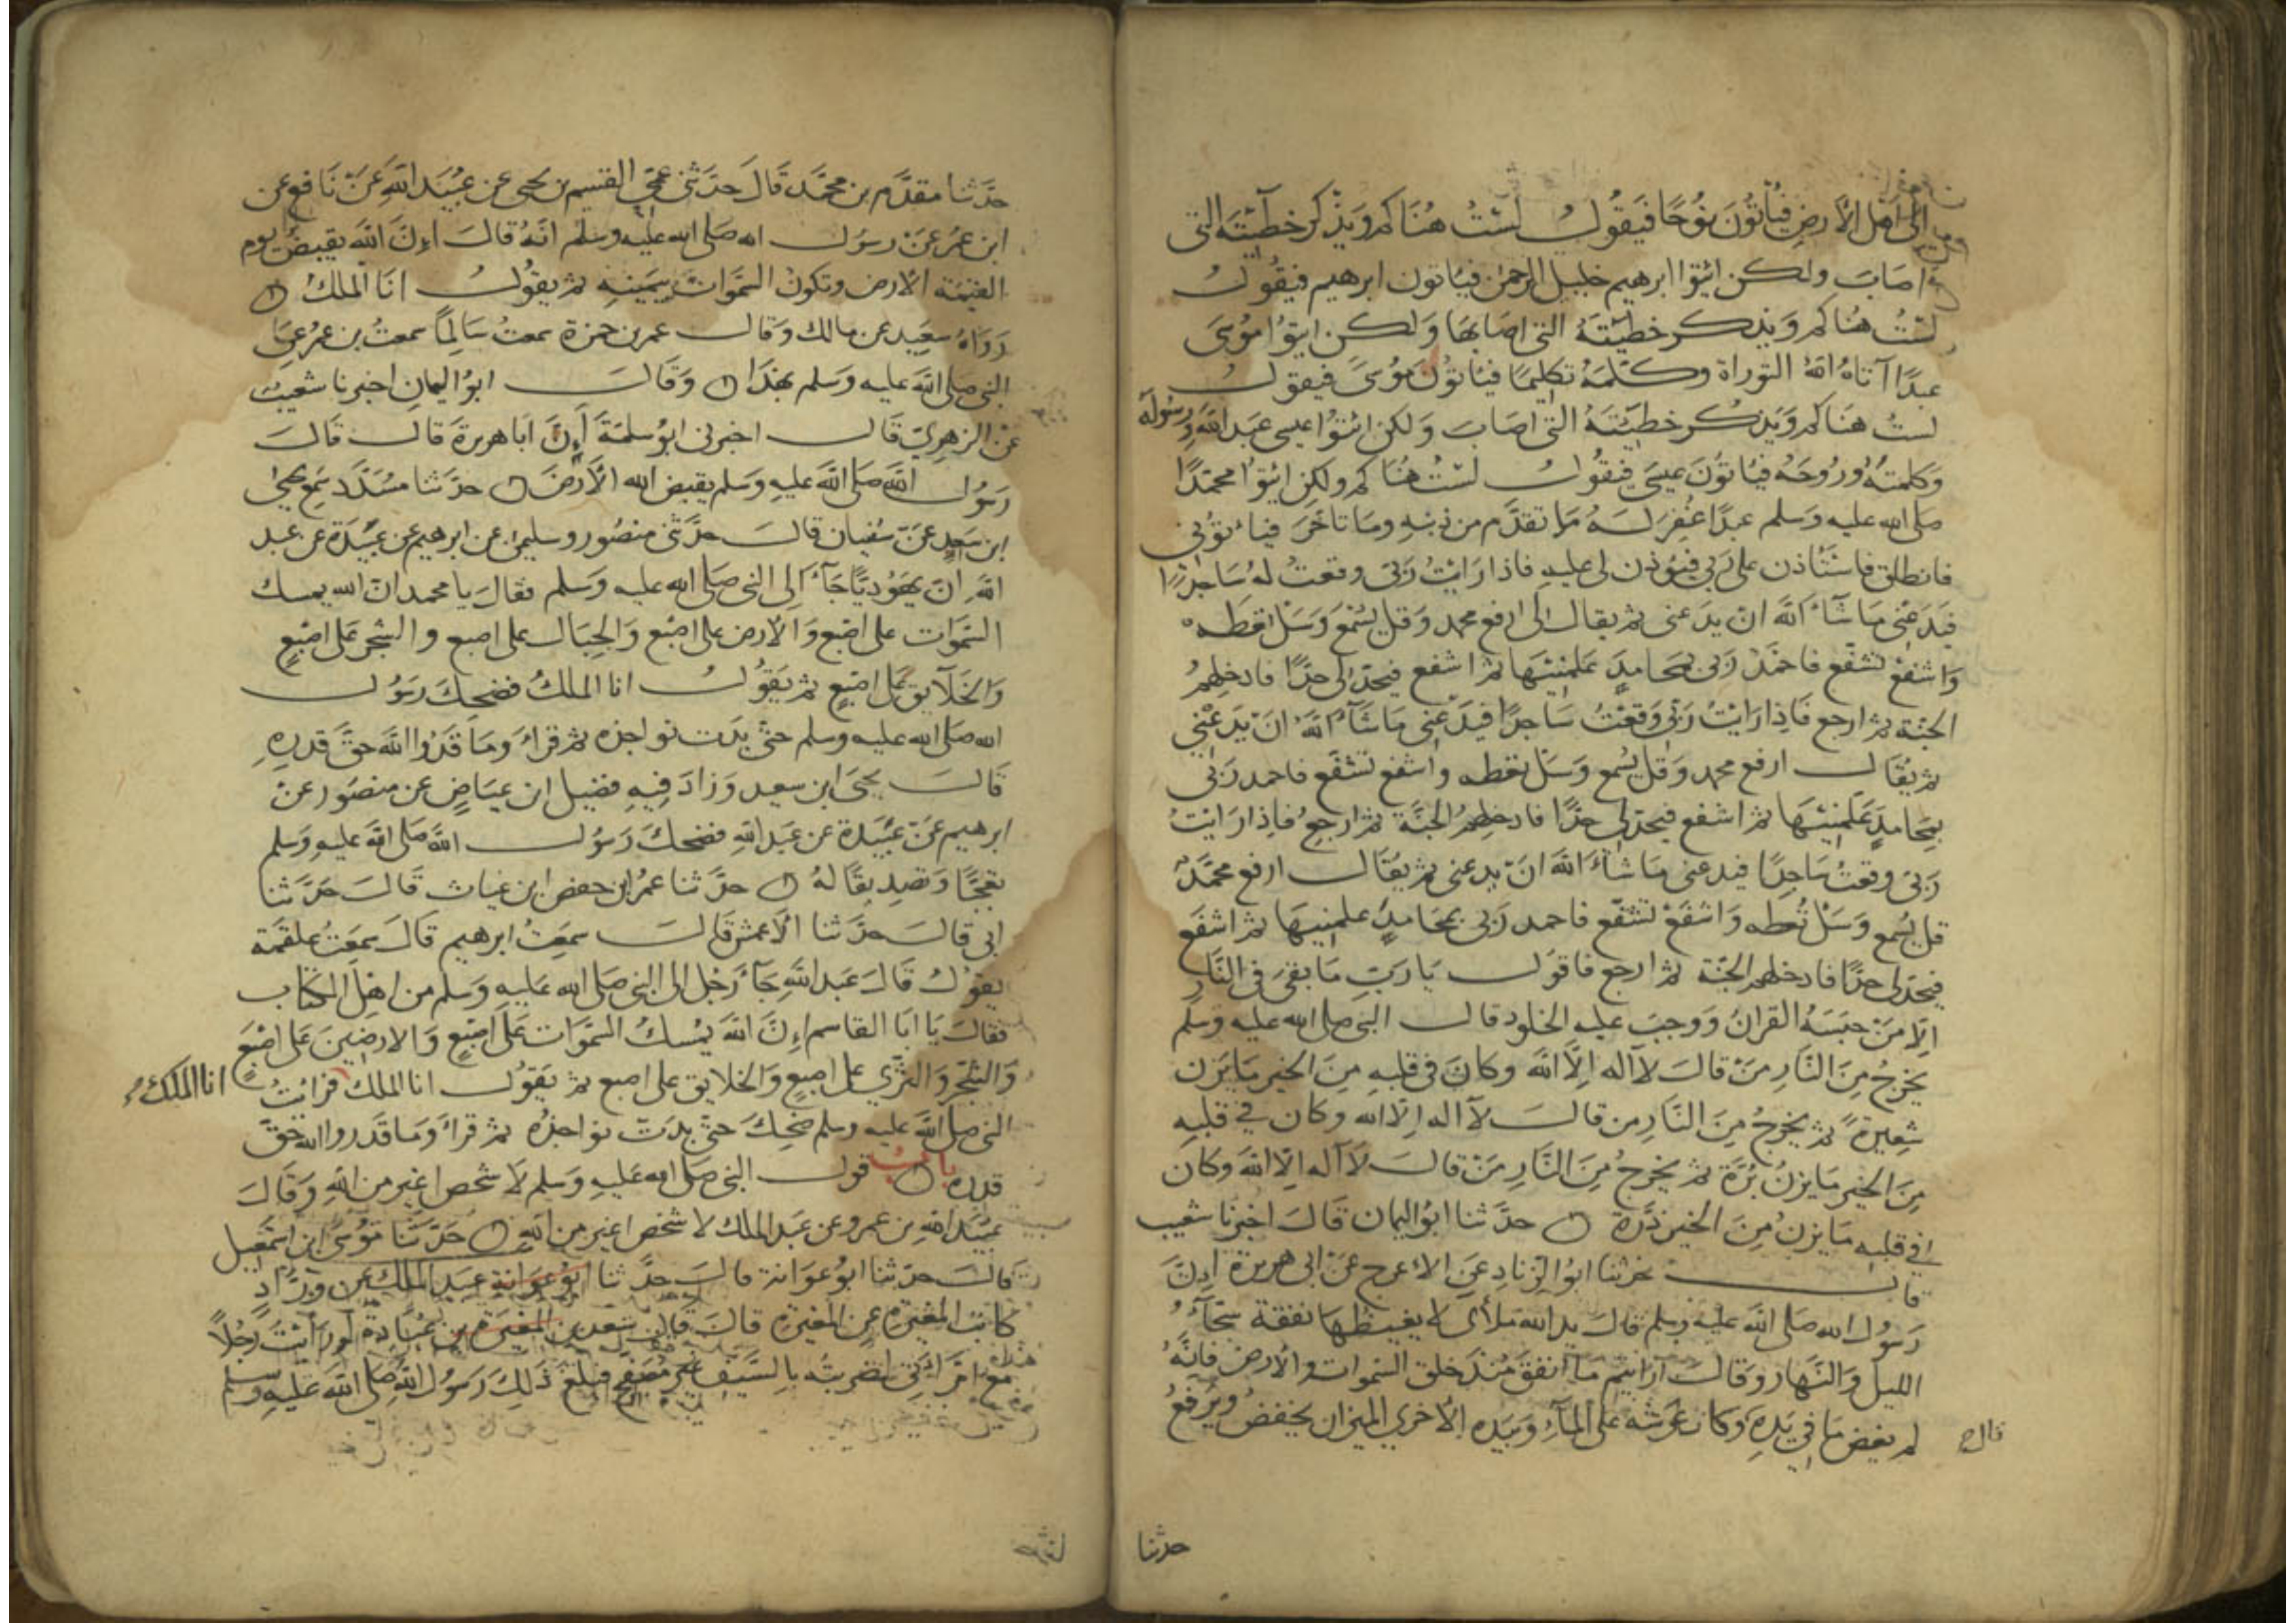 الى اهل الارض فياتون نوحا فيقول لست هناكم ويذكر خطيئته التي
اصاب ولكن ائتوا ابرهيم خليل الرحمن فياتون ابرهيم فيقول
لست هناكم ويذكر خطيئته التي اصابها ولكن ايتوا موسى
عبدا آتاه الله التوراة وكلمه تكليما فياتون موسى فيقول
لست هناكم ويذكر خطيئته التي اصاب ولكن ائتوا عيسى عبد الله ورسوله
وكلمته وروحه فياتون عيسى فيقول لست هناكم ولكن ايتوا محمدا
صلى الله عليه وسلم عبدا غفر له ما تقدم من ذنبه وما تاخر فياتوني
فانطلق فاستاذن على ربي فيوذن لي عليه فاذا رايت ربي وقعت له ساجدا
فيدعني ما شاء الله ان يدعني ثم يقال لي ارفع محمد وقل يسمع وسل تعطه
واشفع تشفع فاحمد ربي بمحامد علمنيها ثم اشفع فيحد لي حدا فادخلهم
الجنة ثم ارجع فاذا رايت ربي وقعت ساجدا فيدعني ما شاء الله ان يدعني
ثم يقال ارفع محمد وقل يسمع وسل تعطه واشفع تشفع فاحمد ربي
بمحامد علمنيها ثم اشفع فيحد لي حدا فادخلهم الجنة ثم ارجع فاذا رايت
ربي وقعت ساجدا فيدعني ما شاء الله ان يدعني ثم يقال ارفع محمد
قل يسمع وسل تعطه واشفع تشفع فاحمد ربي بمحامد علمنيها ثم اشفع
فيحد لي حدا فادخلهم الجنة ثم ارجع فاقول يا رب ما بقي في النار
الا من حبسه القران ووجب عليه الخلود قال النبي صلى الله عليه وسلم
يخرج من النار من قال لا اله الا الله وكان في قلبه من الخير ما يزن
شعيرة ثم يخرج من النار من قال لا اله الا الله وكان في قلبه
من الخير ما يزن برة ثم يخرج من النار من قال لا اله الا الله وكان
في قلبه ما يزن من الخير ذرة حدثنا ابو اليمان قال اخبرنا شعيب
قال حدثنا ابو الزناد عن الاعرج عن ابي هريرة ان
رسول الله صلى الله عليه وسلم قال يد الله ملأى لا يغيظها نفقة سحاء
الليل والنهار وقال ارايتم ما انفق منذ خلق السموات والارض فانه
لم يغض ما في يده وكان عرشه على الماء وبيده الاخرى الميزان يخفض ويرفع
قال
حدثنا
حدثنا مقدم بن محمد قال حدثني عمي القسم بن يحيى عن عبيد الله عن نافع عن
ابن عمر عن رسول الله صلى الله عليه وسلم انه قال ان الله يقبض يوم
القيمة الارض وتكون السموات بيمينه ثم يقول انا الملك
رواه سعيد عن مالك وقال عمر بن حمزة سمعت سالما سمعت بن عمر عن
النبي صلى الله عليه وسلم بهذا وقال ابو اليمان اخبرنا شعيب
عن الزهري قال اخبرني ابو سلمة ان ابا هريرة قال قال
رسول الله صلى الله عليه وسلم يقبض الله الارض حدثنا مسدد سمع يحيى
ابن سعيد عن سفيان قال حدثني منصور وسليمن عن ابرهيم عن عبيدة عن عبد
الله ان يهوديا جاء الى النبي صلى الله عليه وسلم فقال يا محمد ان الله يمسك
السموات على اصبع والارض على اصبع والجبال على اصبع والشجر على اصبع
والخلايق على اصبع ثم يقول انا الملك فضحك رسول
الله صلى الله عليه وسلم حتى بدت نواجذه ثم قراء وما قدروا الله حق قدره
قال يحيى ابن سعيد وزاد فيه فضيل ابن عياض عن منصور عن
ابرهيم عن عبيدة عن عبد الله فضحك رسول الله صلى الله عليه وسلم
تعجبا وتصديقا له حدثنا عمر ابن حفص ابن غياث قال حدثنا
ابي قال حدثنا الاعمش قال سمعت ابرهيم قال سمعت علقمة
يقول قال عبد الله جاء رجل الى النبي صلى الله عليه وسلم من اهل الكتاب
فقال يا ابا القاسم ان الله يمسك السموات على اصبع والارضين على اصبع
والشجر والثرى على اصبع والخلايق على اصبع ثم يقول انا الملك فرايت
انا الملك
النبي صلى الله عليه وسلم ضحك حتى بدت نواجذه ثم قراء وما قدروا الله حق
قدره باب قول النبي صلى الله عليه وسلم لا شخص اغير من الله وقال
عبيد الله بن عمرو عن عبد الملك لا شخص اغير من الله حدثنا موسى ابن اسمعيل
قال حدثنا ابو عوانة قال حدثنا ابو عوانة عبد الملك عن وراد
كاتب المغيرة عن المغيرة قال قال سعد بن المغيرة بن عبادة لو رايت رجلا
مع امراتي لضربته بالسيف غير مصفح فبلغ ذلك رسول الله صلى الله عليه وسلم